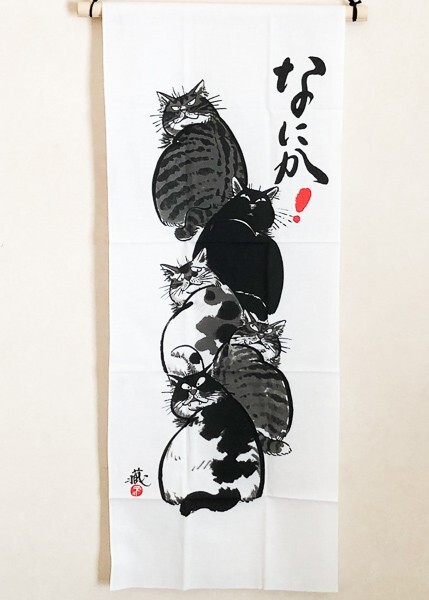 なにか!
蔵